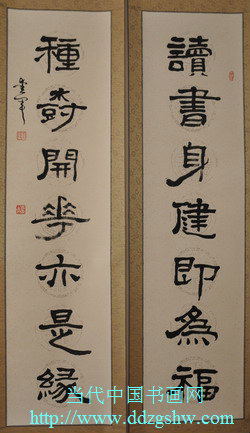 讀書身健即為福
種樹開花亦是緣
当代中国书画网
http://www.ddzgshw.com